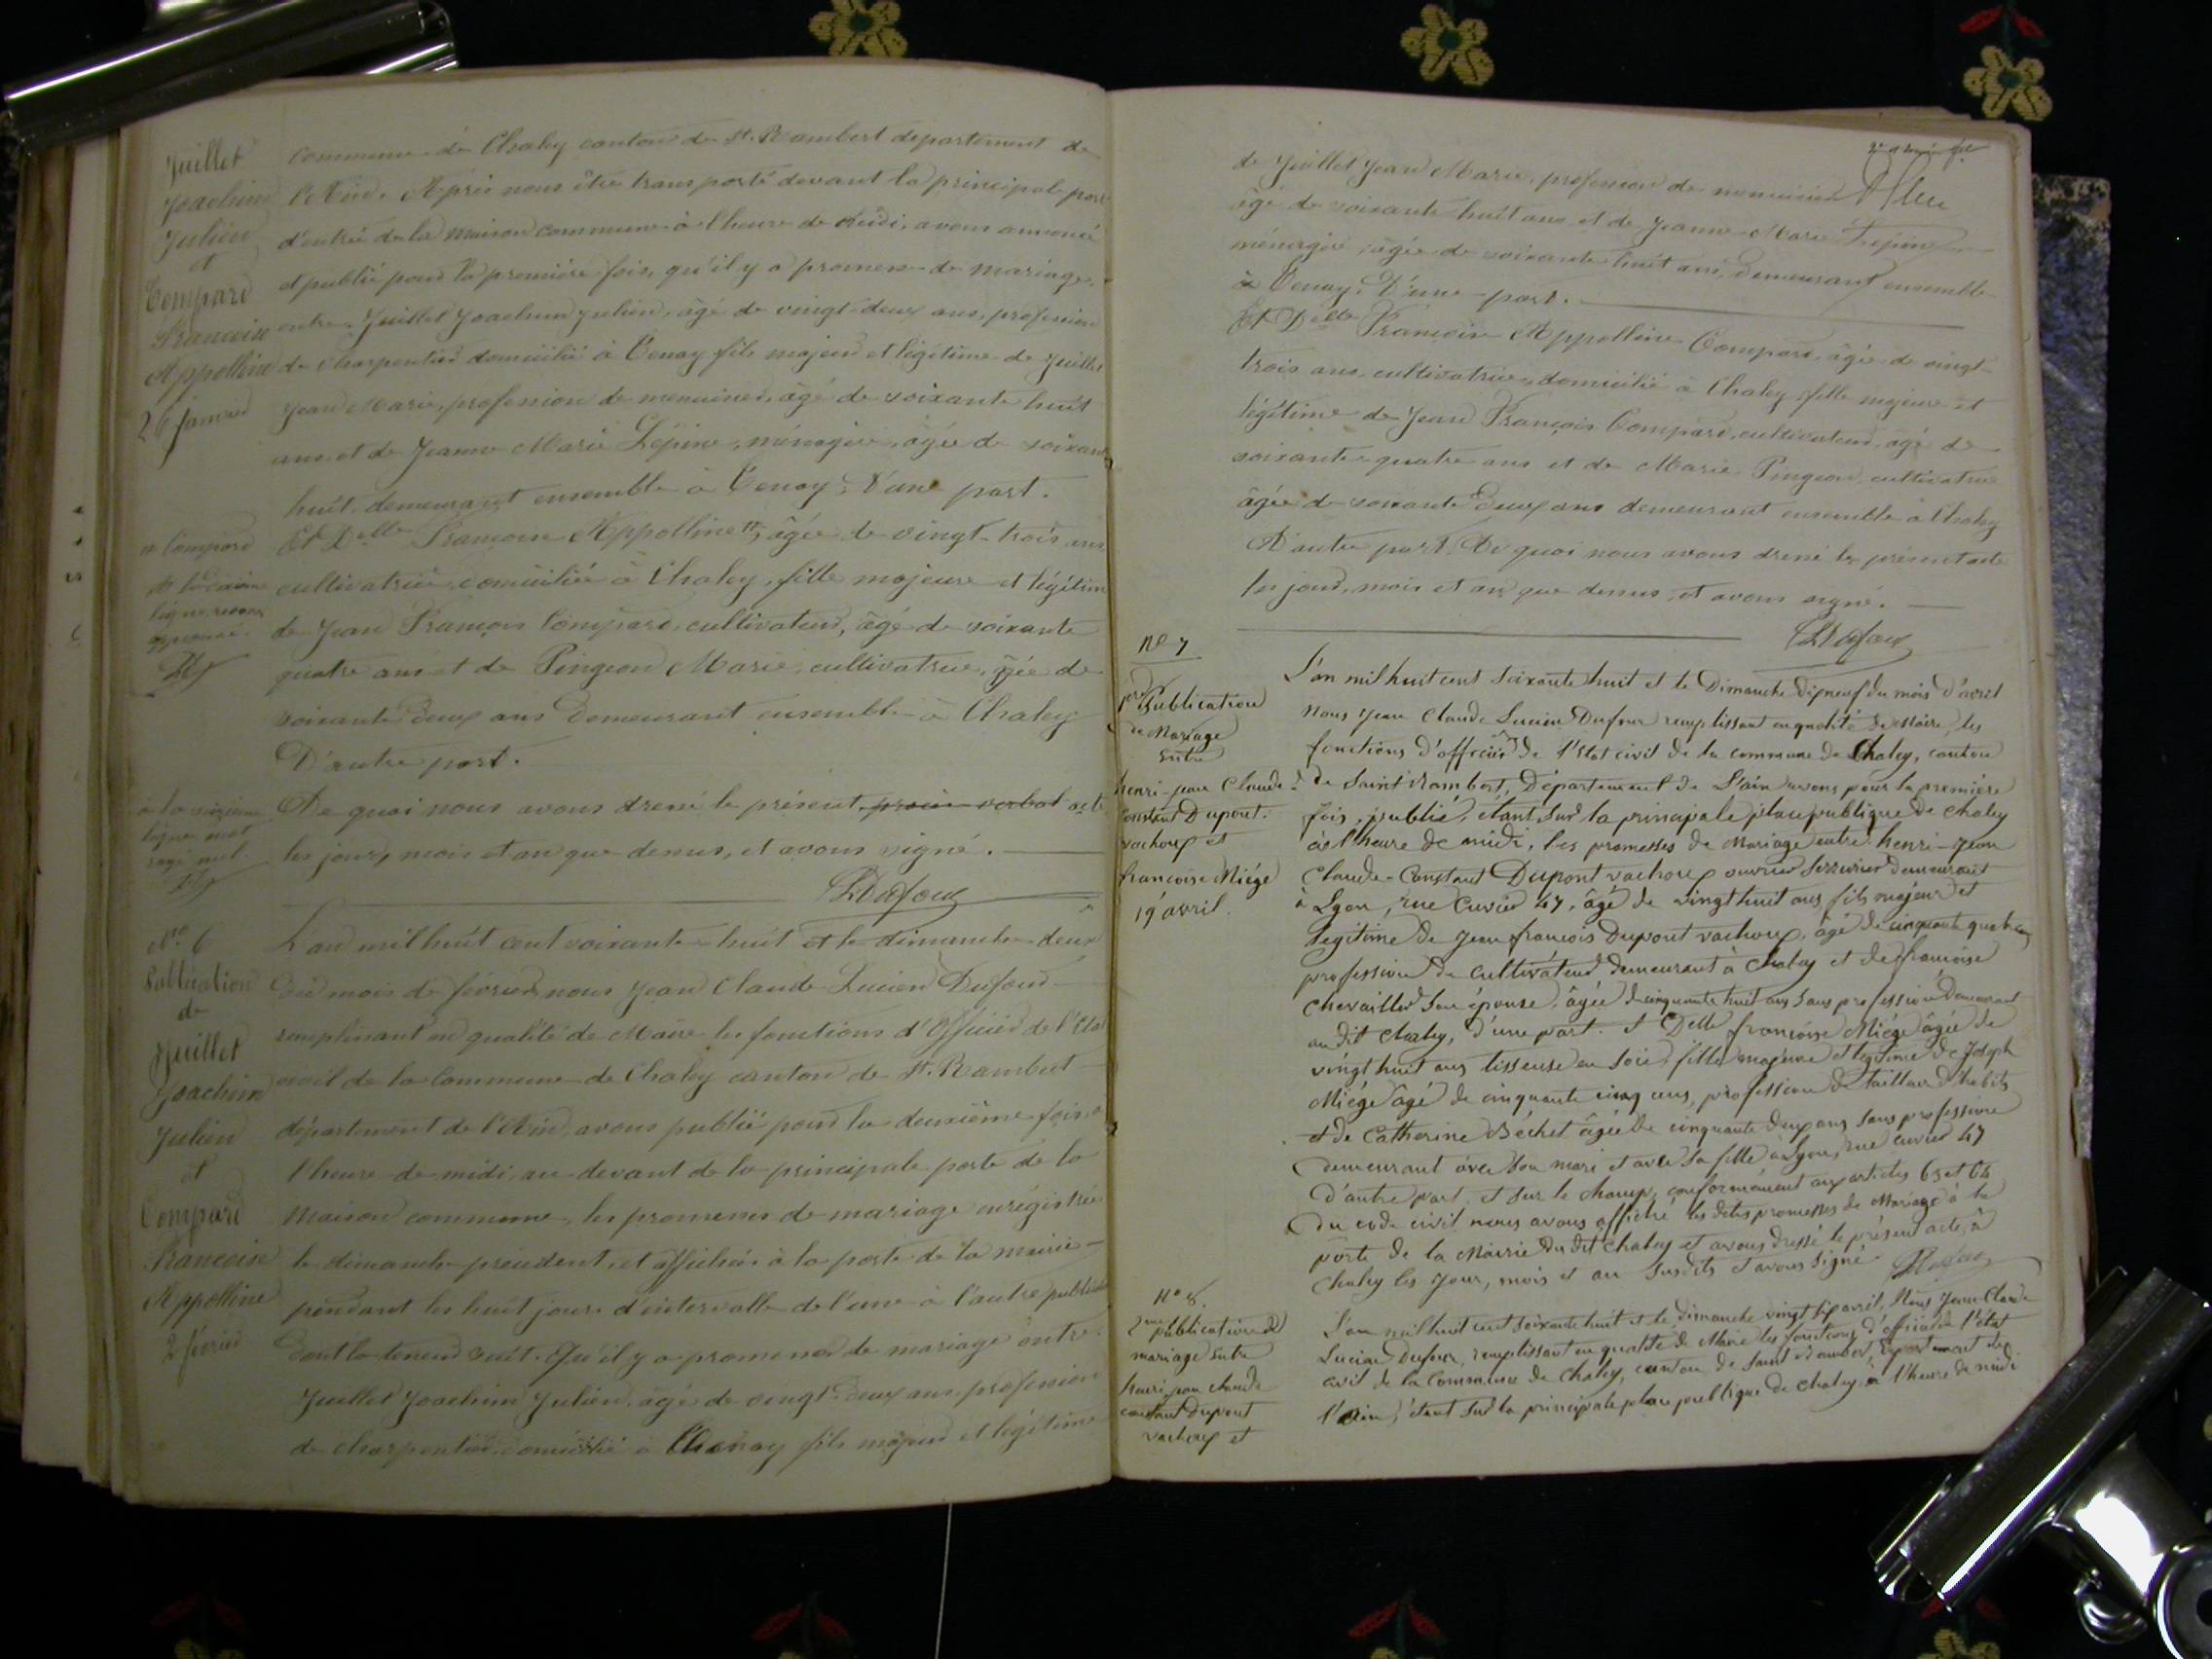 Juillet
Joachim
Julien
et
Compard
Françoise
Appolline
26 janvier
commune de Chaley canton de St. Rambert département de
l'Ain. Après nous être transporté devant la principale porte
d'entrée de la Maison commune à l'heure de midi, avons annoncé
et publié pour la première fois, qu'il y a promesse de mariage
entre Juillet Joachim Julien, âgé de vingt-deux ans, profession
de charpentier domicilié à Tenay fils majeur et légitime de Juillet
Jean Marie, profession de menuisier, âgé de soixante huit
ans et de Jeanne Marie Lépine, ménagère, âgée de soixante
huit, demeurant ensemble à Tenay; D'une part.
Et Delle Françoise Appolline tt, âgée de vingt-trois ans
cultivatrice, domiciliée à Chaley, fille majeure et légitime
de Jean François Compard, cultivateur, âgé de soixante
quatre ans et de Pingeon Marie, cultivatrice, âgée de
soixante deux ans demeurant ensemble à Chaley
D'autre part.
tt Compard
ligne
approuvé.
De quoi nous avons dressé le présent procès-verbal acte
les jour, mois et an que dessus, et avons signé.
à la
ligne mot
rayé nul.
LDufour
No 6
Publication
de
Juillet
Joachim
Julien
et
Compard
Françoise
Appolline
2 février
L'an mil huit cent soixante-huit et le dimanche deux
du mois de février, nous Jean Claude Lucien Dufour
remplissant en qualité de Maire les fonctions d'Officier de l'Etat
civil de la Commune de Chaley canton de St. Rambert
département de l'Ain, avons publié pour la deuxième fois, à
l'heure de midi, au devant de la principale porte de la
Maison commune, les promesses de mariage enrégistrées
le dimanche précédent, et affichées à la porte de la mairie
pendant les huit jours d'intervalle de l'une à l'autre publication
dont la teneur suit. Qu'il y a promesse de mariage entre
Juillet Joachim Julien, âgé de vingt-deux ans, profession
de charpentier, domicilié à Thenay fils majeur et légitime
de Juillet Jean Marie, profession de menuisier
âgé de soixante huit ans et de Jeanne Marie Lépine
ménagère, âgée de soixante huit ans, demeurant ensemble
à Tenay; D'une part.
Et Delle Françoise Appolline Compard, âgée de vingt
trois ans, cultivatrice, domicilié à Chaley, fille majeure et
légitime de Jean François Compard, cultivateur, âgé de
soixante quatre ans et de Marie Pingeon, cultivatrice
âgée de soixante deux ans demeurant ensemble à Chaley
D'autre part. De quoi nous avons dressé le présent acte
les jour, mois et an que dessus, et avons signé.
LDufour
No 7
1re Publication
de Mariage
Entre
henri-jean Claude
Constant Dupont
vachoux et
françoise Miége
19 avril.
L'an mil huit cent soixante huit et le Dimanche dix neuf du mois d'avril
Nous Jean Claude Lucien Dufour remplissant en qualité de Maire, les
fonctions d'officier de l'état civil de la commune de Chaley, canton
de Saint Rambert, Département de L'ain avons pour la première
fois, publié, étant sur la principale place publique de Chaley
à l'heure de midi, les promesses de Mariage entre henri-Jean
Claude-Constant Dupont vachoux ouvrier Serrurier demeurant
à Lyon, rue Cuvier 47, âgé de vingt huit ans fils majeur et
légitime de Jean françois Dupont vachoux, âgé de cinquante quatre ans
profession de cultivateur demeurant à Chaley et de françoise
Chevaillier son épouse, âgée de cinquante huit ans sans profession demeurant
au dit Chaley, d'une part. Et Delle françoise Miége âgée de
vingt huit ans tisseuse en soie, fille majeure et légitime de Joseph
Miége âgé de cinquante cinq ans, profession de tailleur d'habits
et de Catherine Béchet âgée de cinquante deux ans sans profession
demeurant avec son mari et avec sa fille à Lyon, rue Cuvier 47
d'autre part. et sur le champ, conformément aux articles 63 et 64
du code civil nous avons affiché les dites promesses de Mariage à la
porte de la Mairie du dit Chaley et avons dressé le présent acte, à
Chaley les jour, mois et an susdits et avons signé
No 8.
2me publication de
mariage Entre
henri jean claude
constant Dupont
vachoux et
L'an mil huit cent soixante huit et le dimanche vingt six avril, Nous Jean Claude
Lucien Dufour, remplissant en qualité de Maire les fonctions d'officier de l'état
civil de la Commune de Chaley, canton de Saint Rambert, Département de
l'Ain, étant sur la principale place publique de Chaley, à l'heure de midi